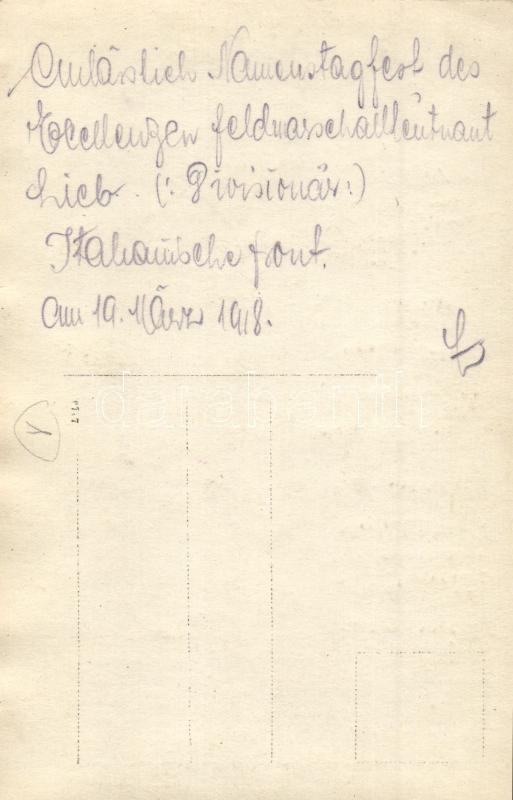 Anlässlich Namenstagfest des
Excellenzen Feldmarschalleutnant
Lieb. (: Divisionär :)
Italianische front.
Am 19. März 1918.
darabanth
Y